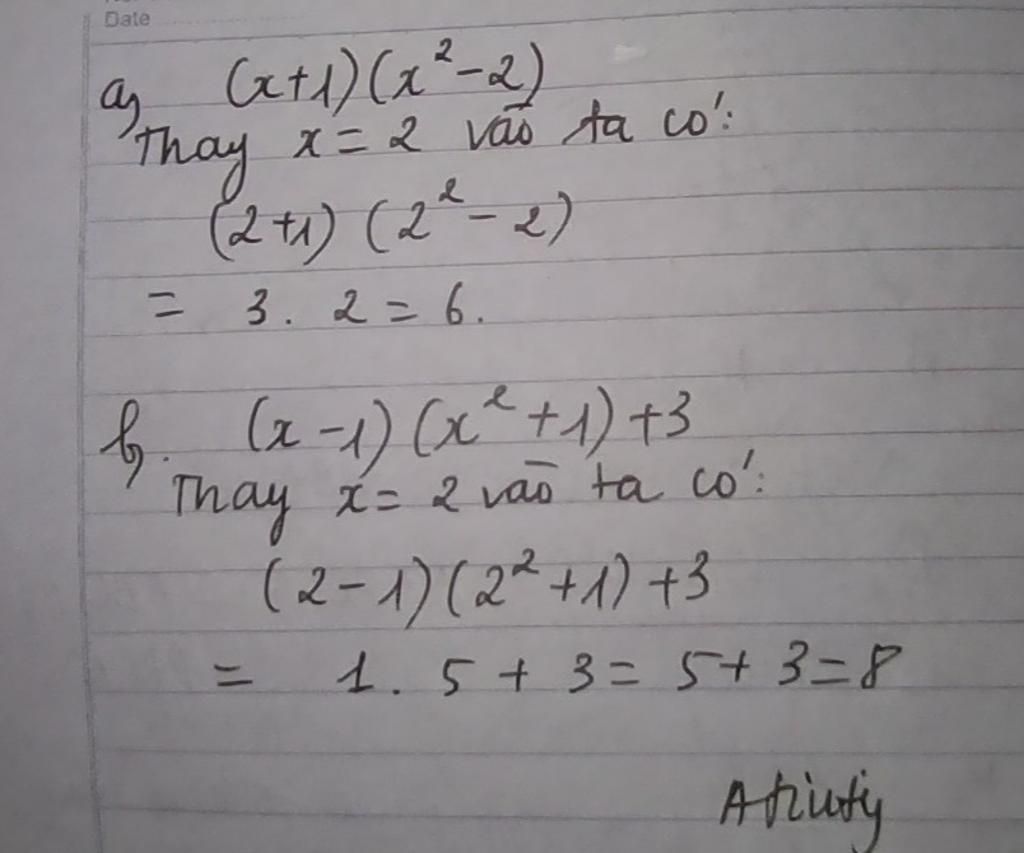 Date
a, (x+1)(x²-2)
Thay x = 2 vào ta có:
(2+1)(2²-2)
= 3. 2 = 6.
b, (x-1)(x²+1)+3
Thay x = 2 vào ta có:
(2-1)(2²+1)+3
= 1. 5 + 3 = 5+ 3 = 8